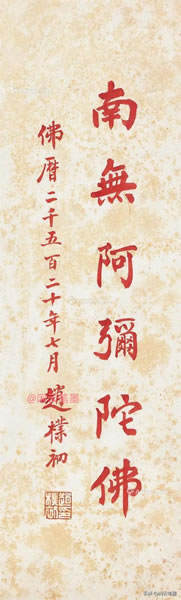 南無阿彌陀佛
佛曆二千五百二十年七月趙樸初